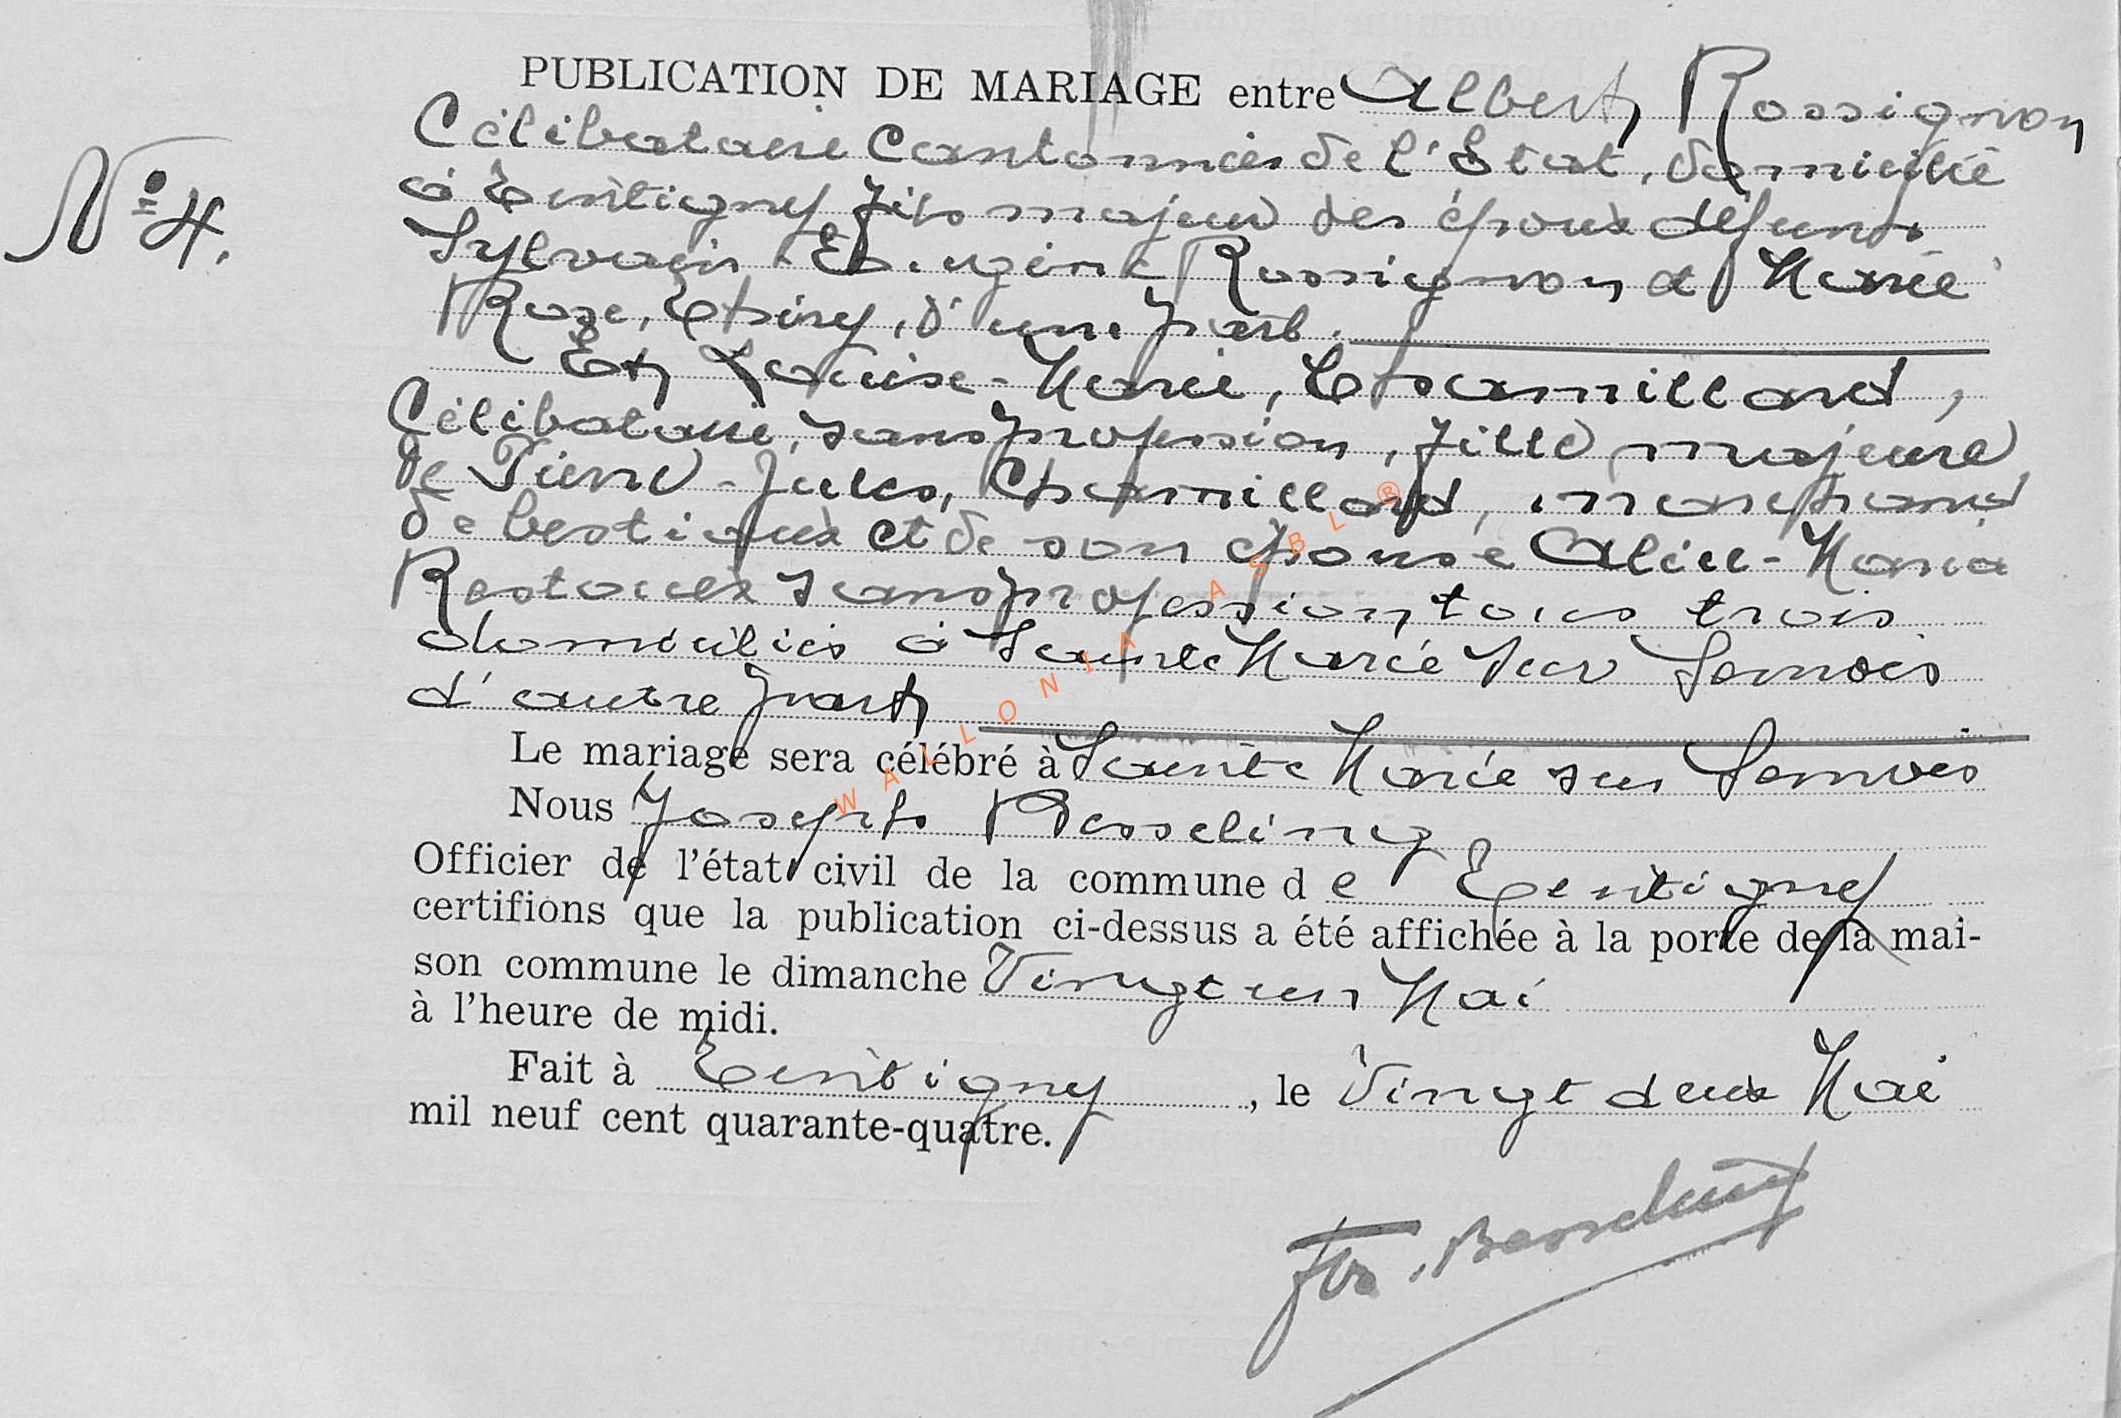 PUBLICATION DE MARIAGE entre Albert Rossignon
Célibataire Cantonnier de l'Etat, domicilié
N° 4.
à Tintigny fils majeur des époux défunts
Sylvain-Eugène Rossignon et Marie
Rose, Thiry, d'une part.
Et Louise-Marie, Chamilland,
Célibataire, sans profession, fille majeure
de Pierre-Jules, Chamilland, marchand
de bestiaux et de son épouse Alice-Maria
Restoueix sans profession, tous trois
domiciliés à Sainte Marie sur Semois
d'autre part
Le mariage sera célébré à Sainte Marie sur Semois
Nous Joseph Besseling
Officier de l'état civil de la commune de Tintigny
certifions que la publication ci-dessus a été affichée à la porte de la mai-
son commune le dimanche Vingt un Mai
à l'heure de midi.
Fait à Tintigny, le Vingt deux Mai
mil neuf cent quarante-quatre.
Jos. Besseling
WALLONIA ASBL ®